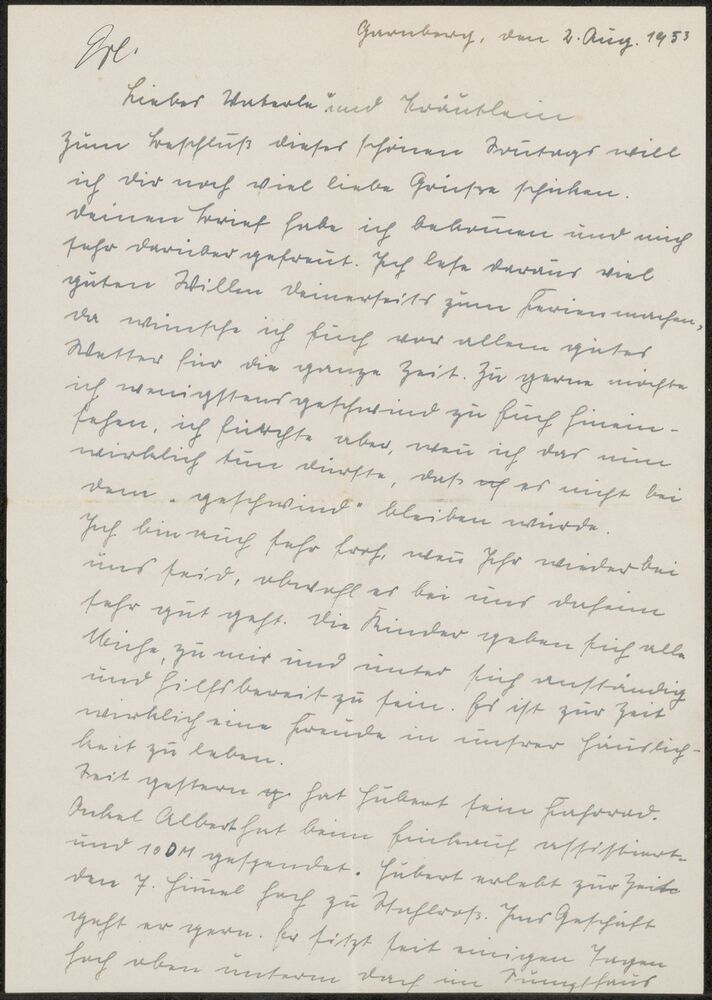 Garnberg, den 2. Aug. 1953
Liebes Vaterle und Bräutlein
Zum Beschluß dieses schönen Sonntags will
ich dir noch viel liebe Grüße schicken.
Deinen Brief habe ich bekommen und mich
sehr darüber gefreut. Ich lese daraus viel
guten Willen deinerseits zum Ferienmachen,
da wünsche ich Euch vor allem gutes
Wetter für die ganze Zeit. Zu gerne möchte
ich wenigstens geschwind zu Euch hinein-
sehen, ich fürchte aber, wenn ich das nun
wirklich tun dürfte, daß es nicht bei
dem "geschwind" bleiben würde.
Ich bin auch sehr froh, wenn Ihr wieder bei
uns seid, obwohl es bei uns daheim
sehr gut geht. Die Kinder geben sich alle
Mühe, zu mir und unter sich anständig
und hilfsbereit zu sein. Es ist zur Zeit
wirklich eine Freude in unsrer Häuslich-
keit zu leben.
Seit gestern hat Hubert sein Fahrrad.
Onkel Albert hat beim Einkauf assistiert
und 10 DM gespendet. Hubert erlebt zur Zeit
den 7. Himmel hoch zu Stahlroß. Ins Geschäft
geht er gern. Er sitzt seit einigen Tagen
hoch oben unterm Dach im